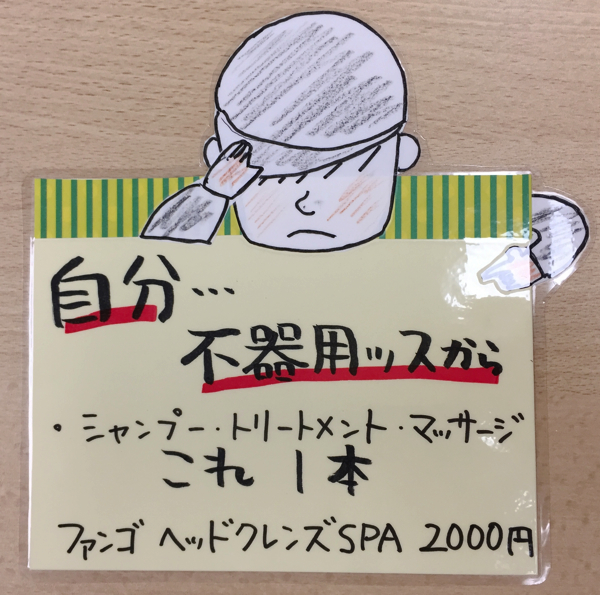 自分…
不器用ッスから
・シャンプー・トリートメント・マッサージ
これ1本
ファンゴ ヘッドクレンズSPA 2000円